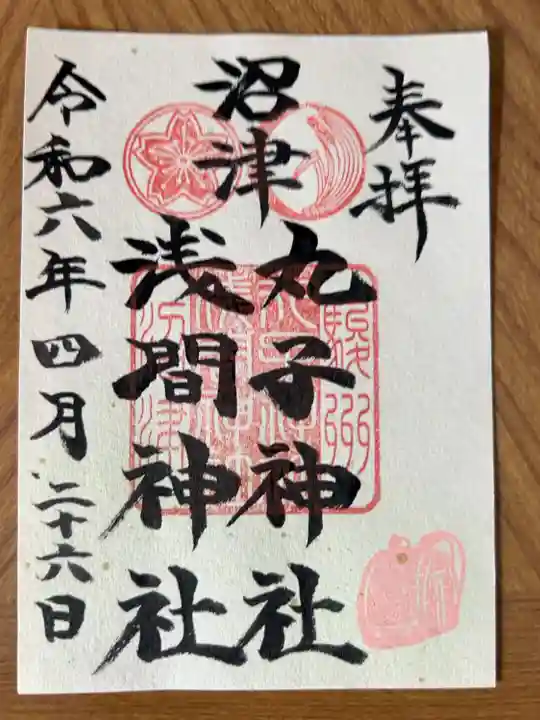 奉拝
沼津
丸子神社
浅間神社
令和六年四月二十六日
駿州